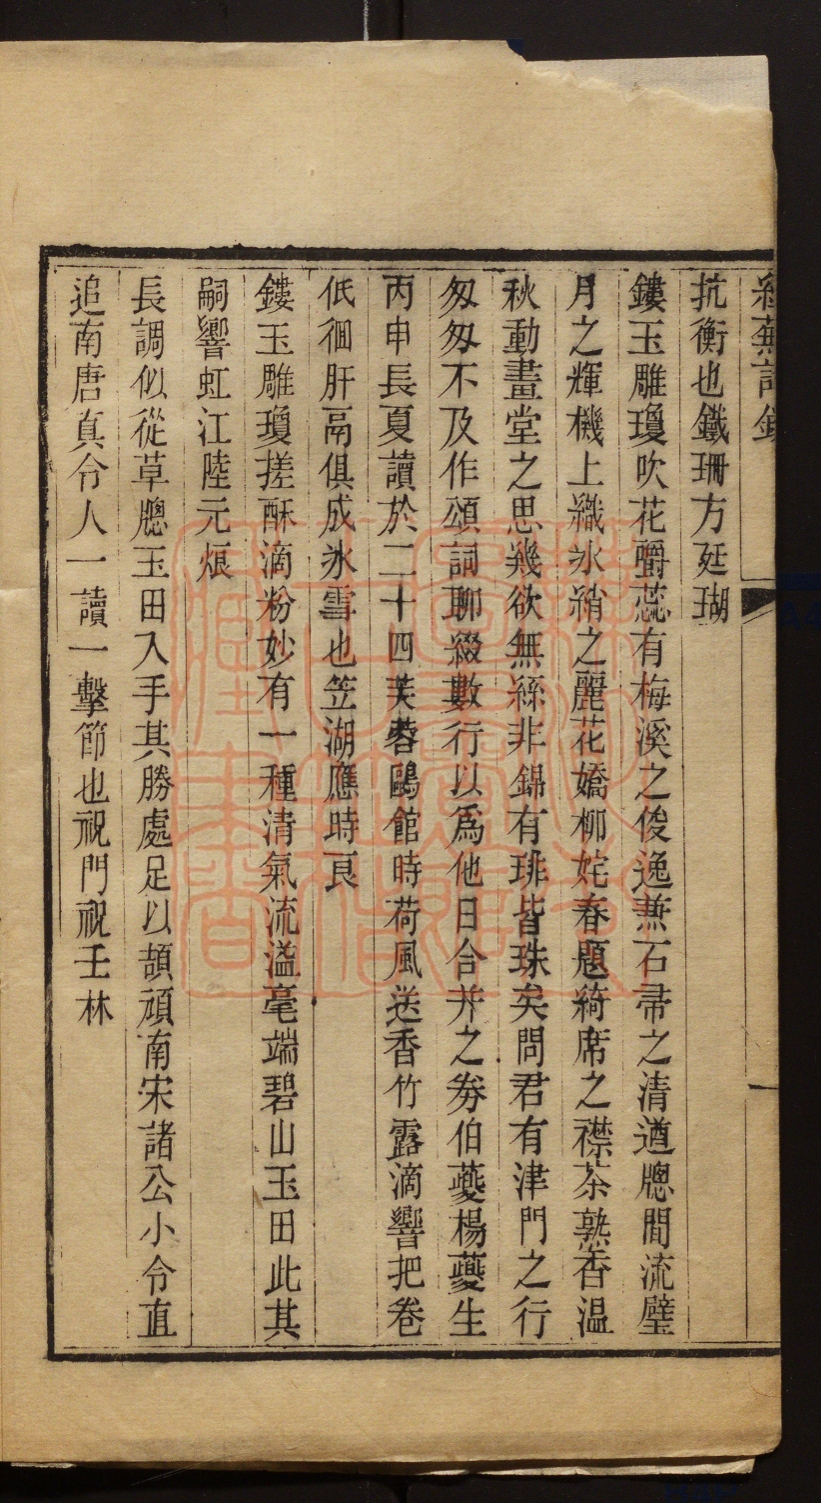 蕪詞鈔
抗衡也鐵珊方廷瑚
鏤玉雕瓊吹花嚼蕊有梅溪之俊逸蕪石帚之清遒牕間流璧
月之輝機上織冰綃之麗花嬌柳姹春題綺席之襟茶熟香溫
秋動畫堂之思幾欲無絲非錦有琲皆珠矣問君有津門之行
匆匆不及作頌詞聊綴數行以爲他日合并之券伯夔楊夔生
丙申長夏讀於二十四芙蓉鷗館時荷風送香竹露滴響把卷
低徊肝鬲俱成冰雪也笠湖應時良
鏤玉雕瓊搓酥滴粉妙有一種清氣流溢毫端碧山玉田此其
嗣響虹江陸元烺
長調似從草牕玉田入手其勝處足以頡頏南宋諸公小令直
追南唐真令人一讀一擊節也祝門祝壬林
一